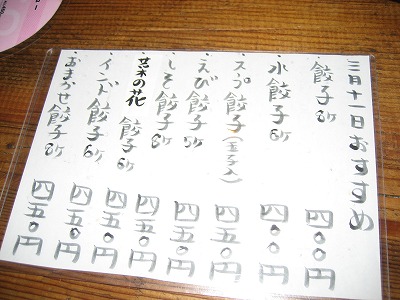 三月十一日おすすめ
餃子8ケ 四〇〇円
水餃子6ケ 四〇〇円
スープ餃子(玉子入) 四五〇円
えび餃子5ケ 四五〇円
しそ餃子8ケ 四五〇円
菜の花餃子6ケ 四五〇円
インド餃子6ケ 四五〇円
おまかせ餃子8ケ 四五〇円